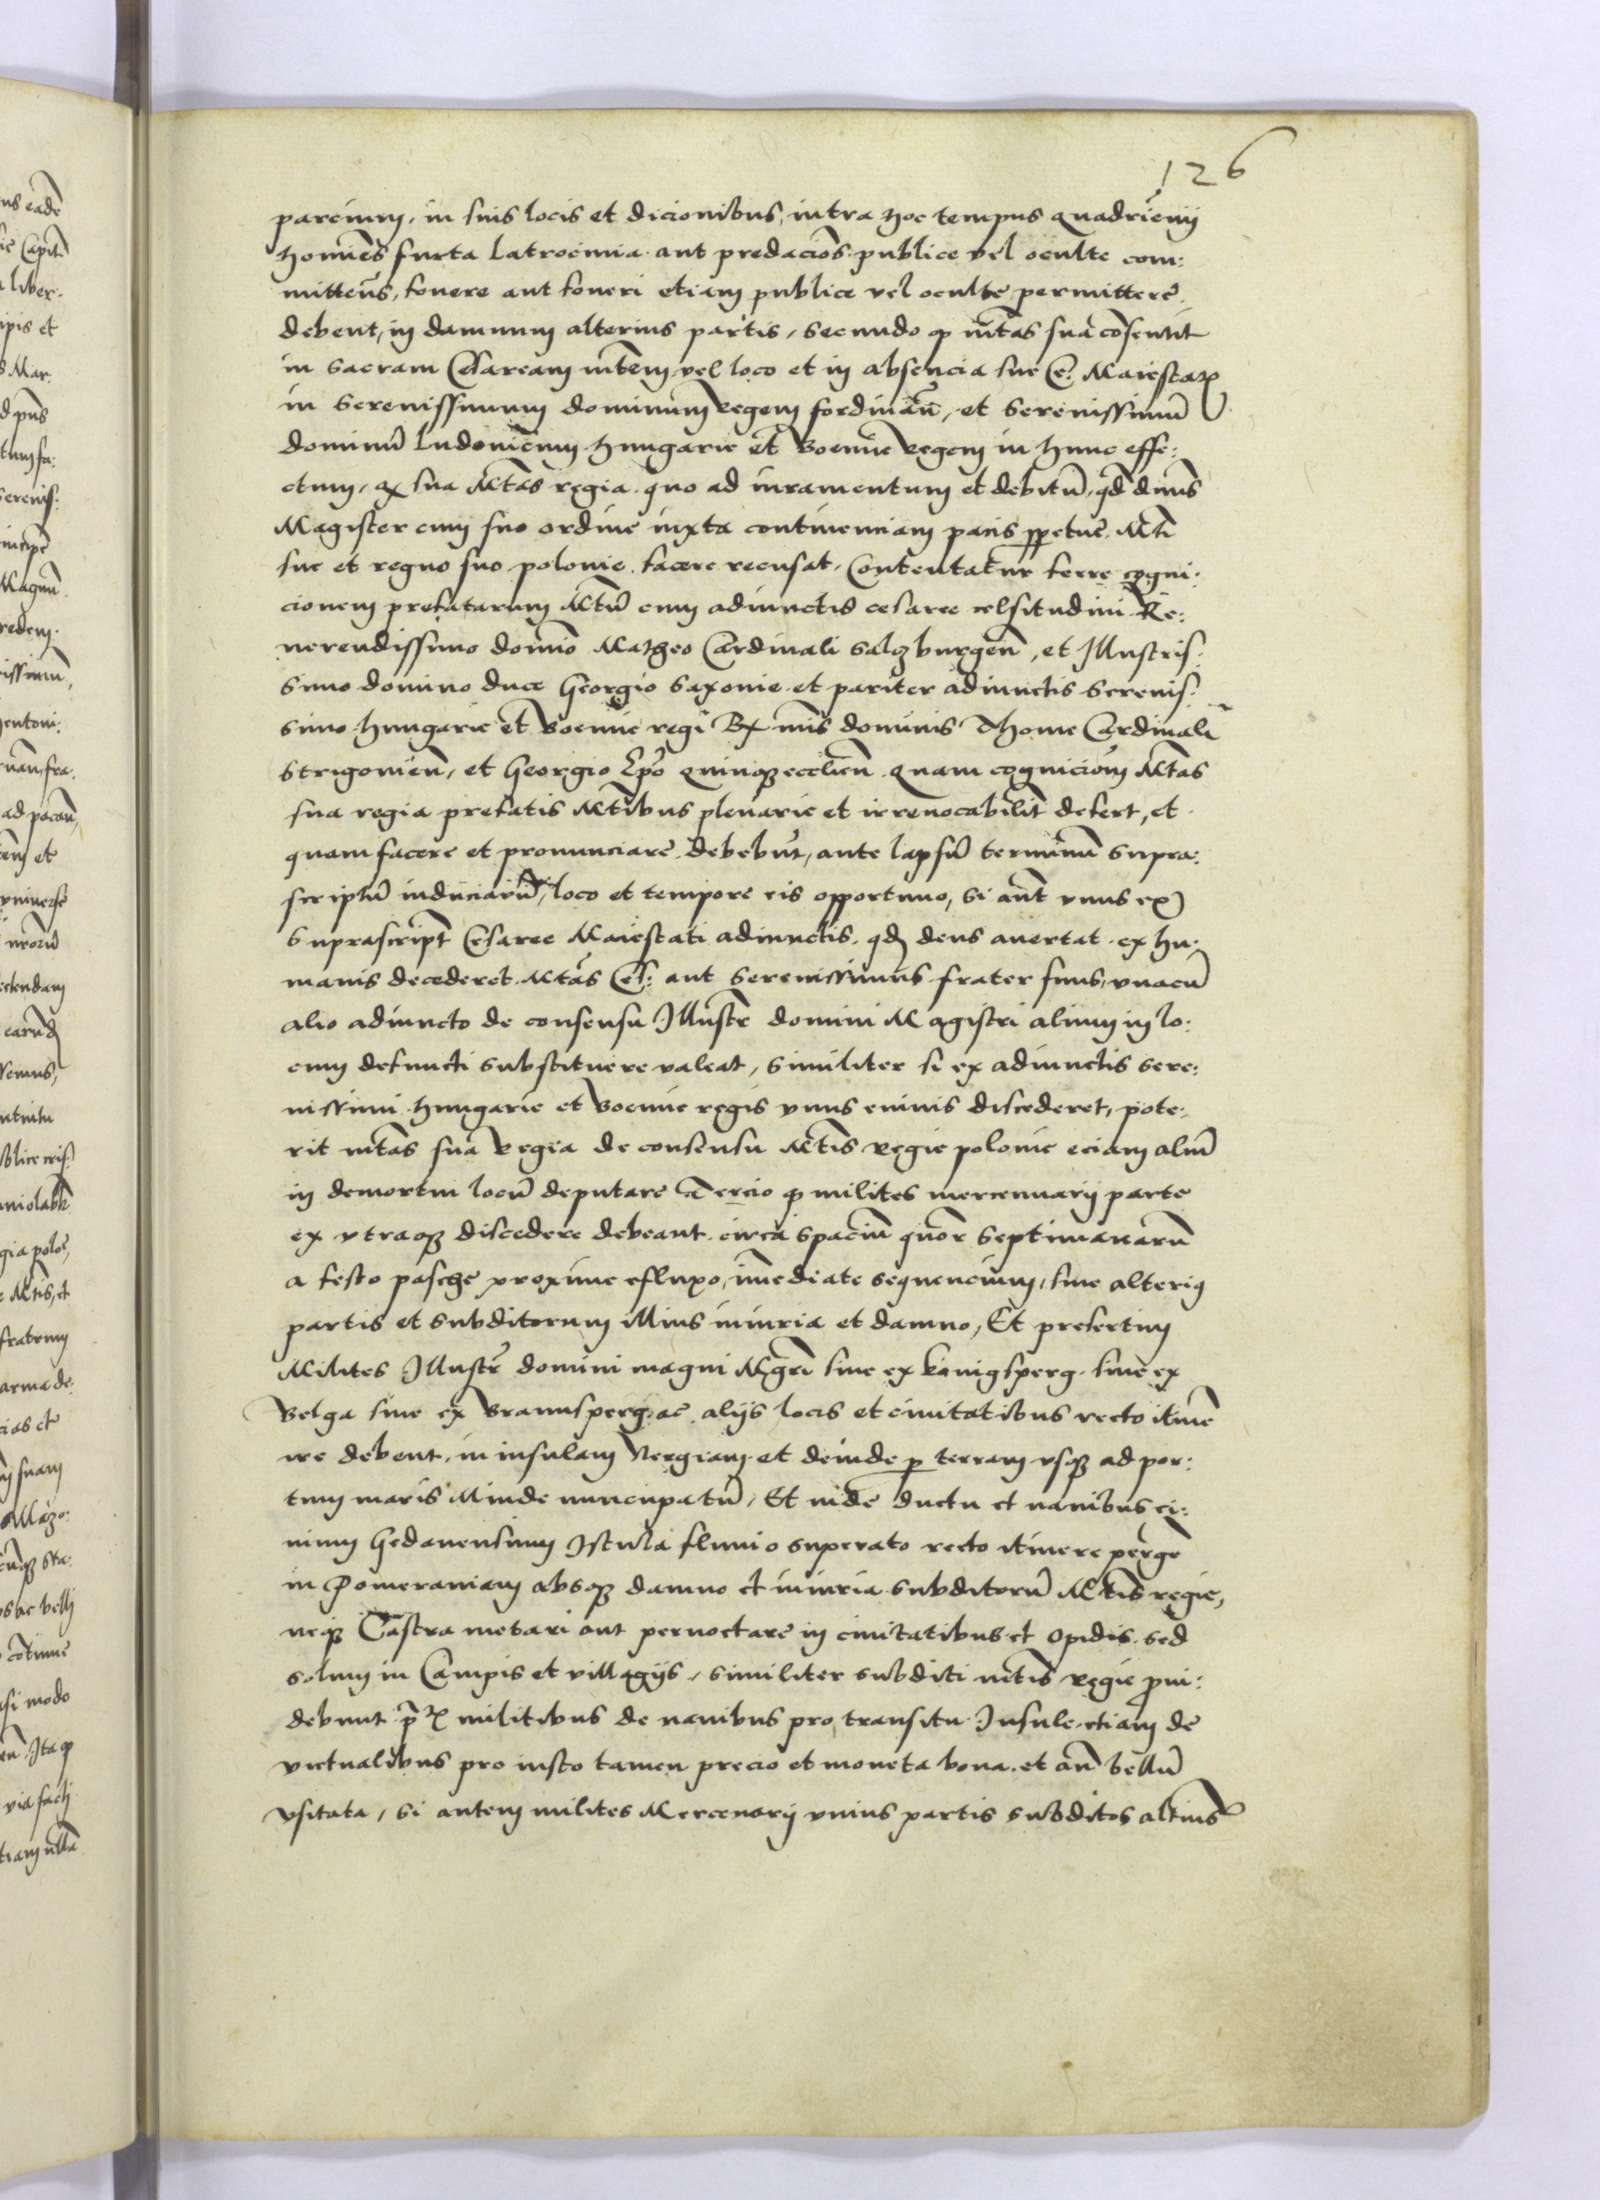 126
parcium, in suis locis et dicionibus, intra hoc tempus quadrienij
homines furta latrocinia aut predacōs publice vel oculte com:
mittens̄, fovere aut foveri etiam publice vel oculte permittere
debent, in damnum alterius partis, Secundo q̄ mtas sua cōsentit
in Sacram Cesaream mtem vel loco et in absencia sue Ce: Maiestatꝭ
in Serenissimum dominum regem ferdinān, et Serenissimū
dominū ludovicum hungarie et Boemie Regem in hunc effe:
ctum, qꝫ sua Mtas regia quo ad iuramentum et debitū, qd dnus
Magister cum suo ordine iuxta continenciam pacis ꝑpetue Mti
sue et regno suo polonie facere recusat, Contentatur ferre cogni:
cionem prefatarum Mtū cum adiunctis cesaree celsitudini Re:
verendissimo domīo Matheo Cardinali Salczburgen̄, et Illustris:
simo domino duce Georgio Saxonie et pariter adiunctis Serenis:
simo hungarie et Boemie regi Rx mis dominis Thome Cardinali
Strigonien̄, et Georgio Ep̄o Quinqꝫecclien̄ quam cognicioem Mtas
sua regia prefatis Mtibus plenarie et irrevocabiliť defert, et
quam facere et pronunciare debebūt, ante lapsū terminū supra:
scriptū induciarū, loco et tempore eis opportuno, Si aūt vnus ex
Suprascript̄ Cesaree Maiestati adiunctis, qd deus avertat ex hu:
manis decederet Mtas Ces: aut Serenissimus frater suus, vnacū
alio adiuncto de consensu Illustr̄ domini Magistri alium in lo:
cum defuncti substituere valeat, Similiter si ex adiunctis Sere:
nissimi hungarie et Boemie regis vnus eivis discederet, pote:
rit mtas sua Regia de consensu Mtis Regie polonie eciam aliū
in demortui locū deputare Tercio q̄ milites mercennarij parte
ex vtraqꝫ discedere debeant circa spaciū quor̄ Septimanarū
a festo pasche proxime efluxo, īmediate sequencium, sine alteriꝰ
partis et subditorum illius iniuria et damno, Et presertim
Milites Illustr̄ domini magni Mgr̄i sive ex königsperg sive ex
Belga sive ex Braunsperg ac alijs locis et civitatibus recto itine
ire debent in insulam Nergiam et deinde ꝑ terram vsqꝫ ad por:
tum maris Minde nuncupatū, Et inde ductu et navibus ci:
vium Gedanensium Istula fluvio superato recto itinere pergē
in Pomeraniam absqꝫ damno et iniuria subditorū Mtis regie,
neqꝫ Castra metari aut pernoctare in civitatibus et opidis sed
solum in Campis et villagijs, Similiter subditi mtis Regie ꝓui:
debunt militibus de navibus pro transitu Insule etiam de
victualibus pro iusto tamen precio et moneta bona et an̄ bellū
vsitata, Si autem milites Mercenarij vnius partis subditos altius